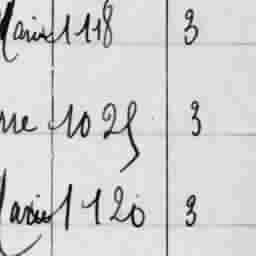 Marie 1118 3
rre 1025 3
Marie 1120 3